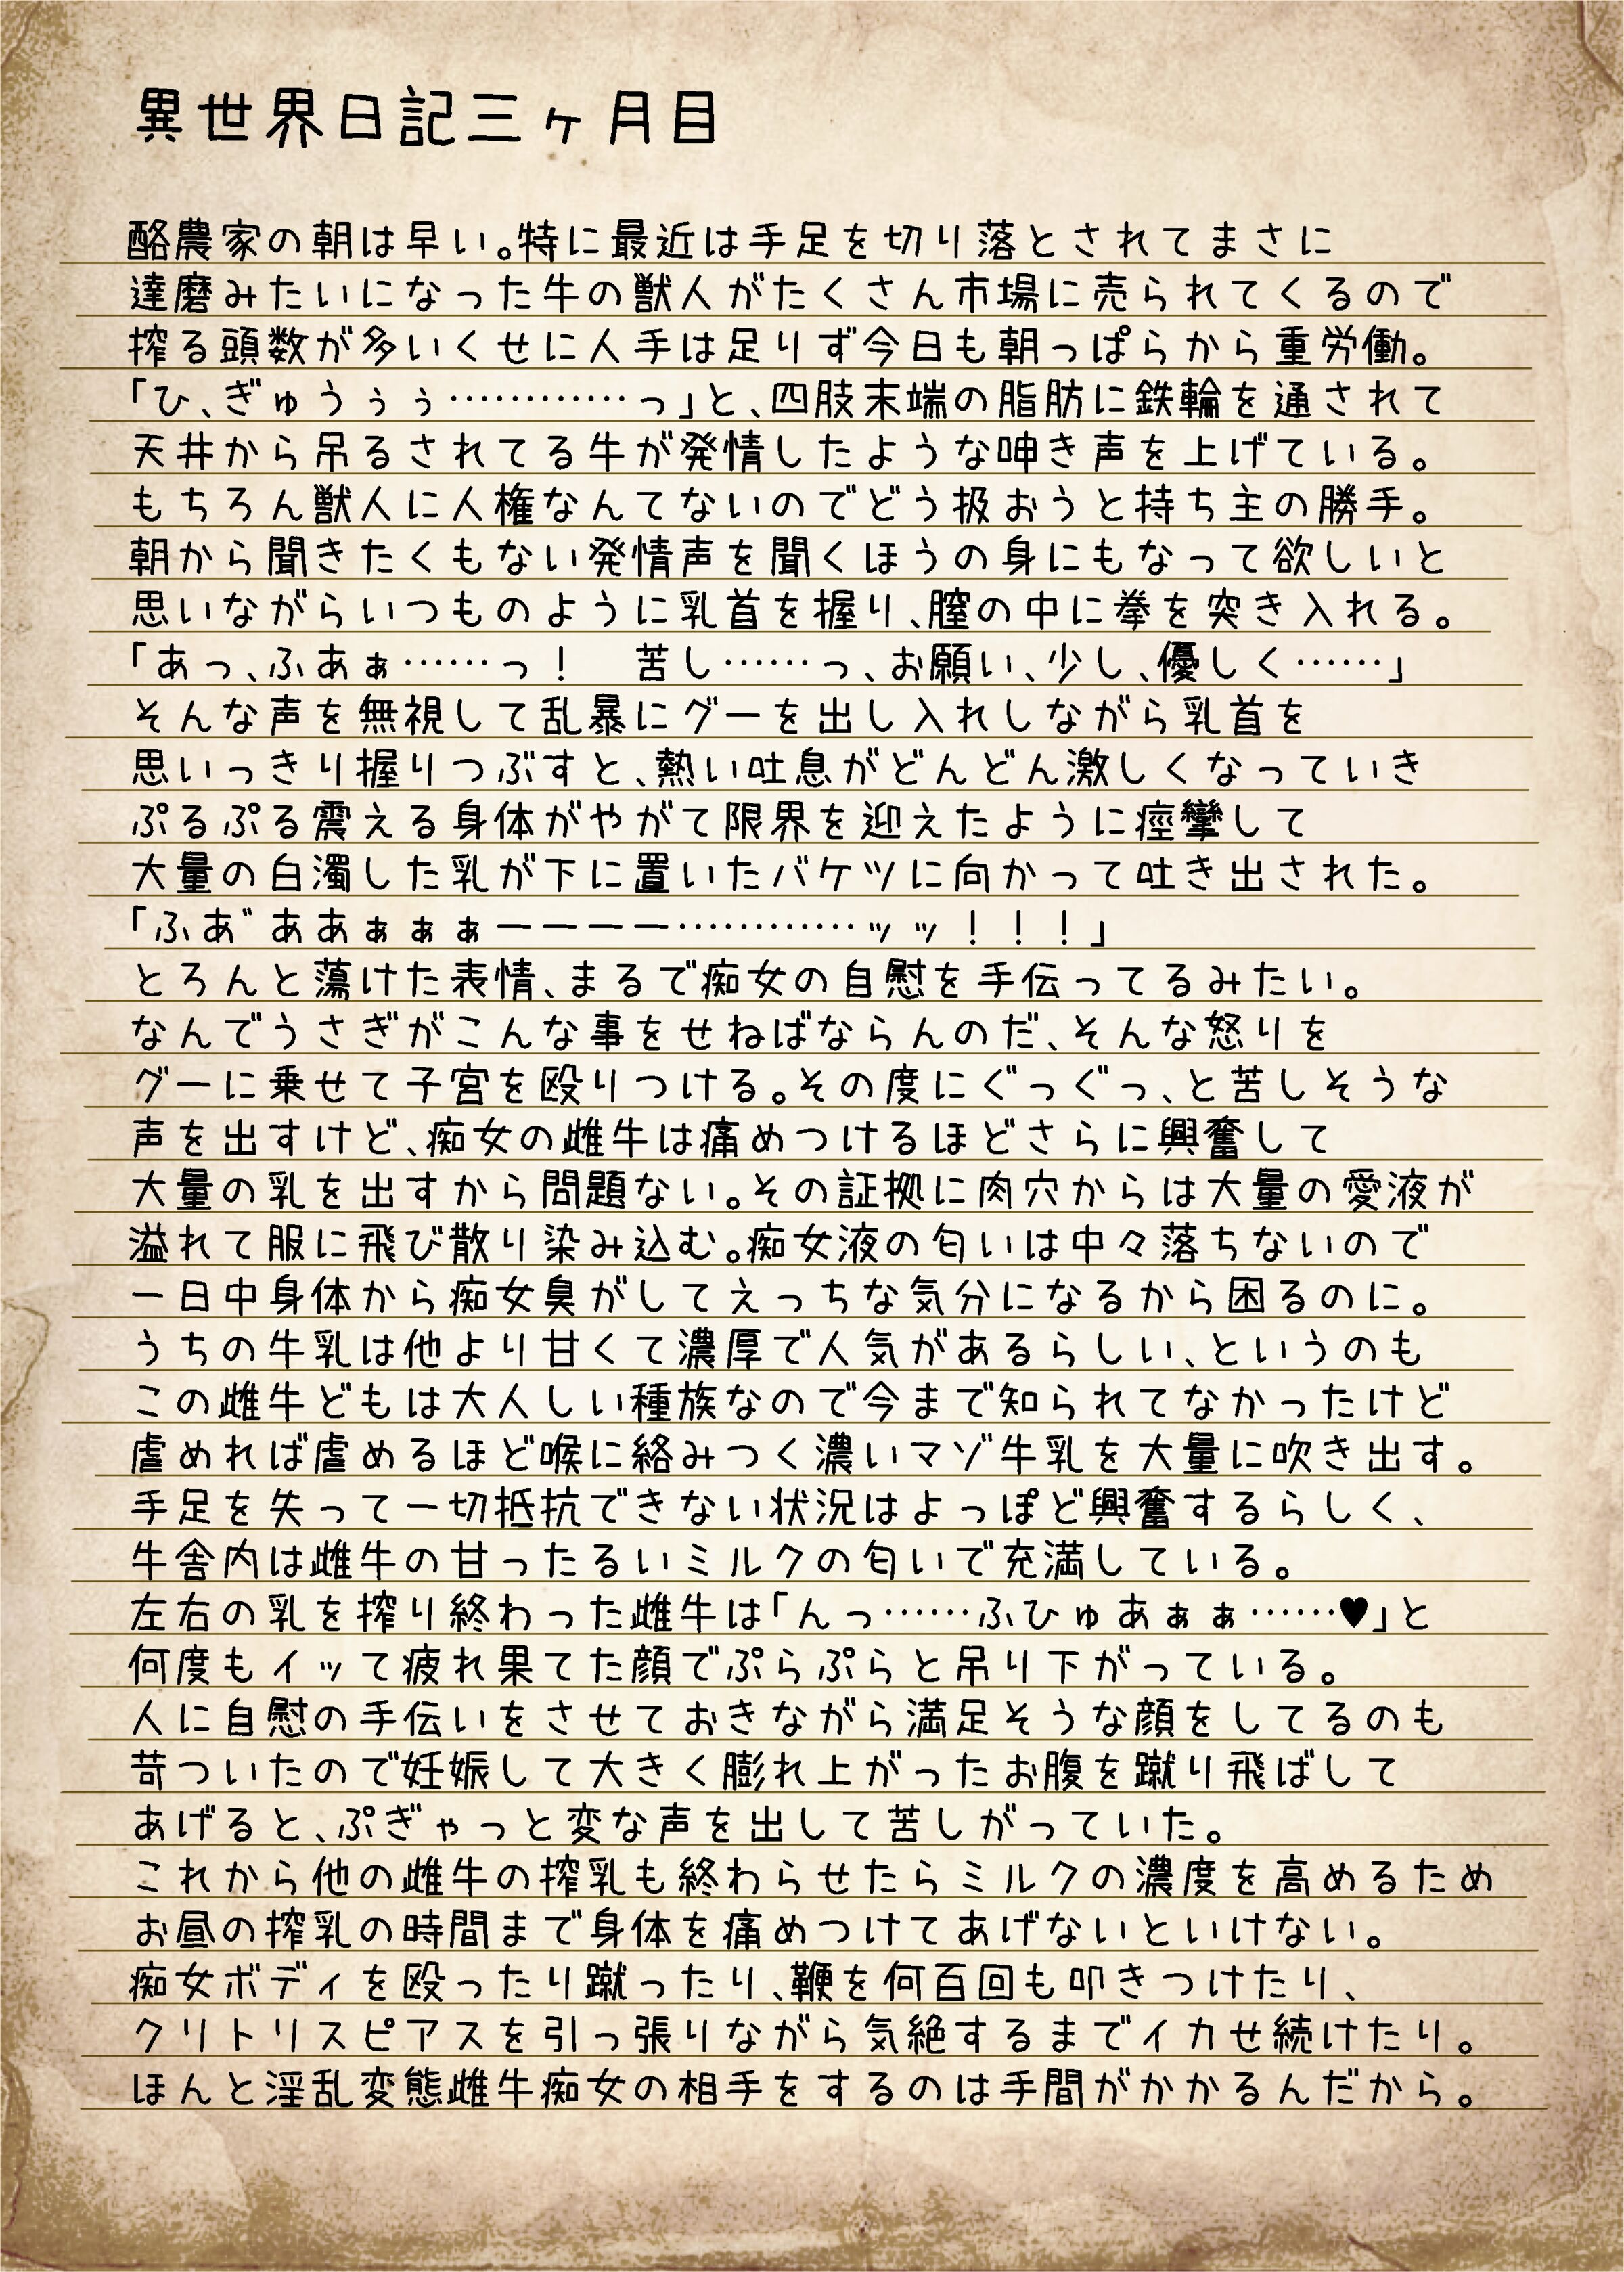 異世界日記三ヶ月目
酪農家の朝は早い。特に最近は手足を切り落とされてまさに
達磨みたいになった牛の獣人がたくさん市場に売られてくるので
搾る頭数が多いくせに人手は足りず今日も朝っぱらから重労働。
「ひ、ぎゅうぅぅ…………っ」と、四肢末端の脂肪に鉄輪を通されて
天井から吊るされてる牛が発情したような呻き声を上げている。
もちろん獣人に人権なんてないのでどう扱おうと持ち主の勝手。
朝から聞きたくもない発情声を聞くほうの身にもなって欲しいと
思いながらいつものように乳首を握り、膣の中に拳を突き入れる。
「あっ、ふあぁ……っ！　苦し……っ、お願い、少し、優しく……」
そんな声を無視して乱暴にグーを出し入れしながら乳首を
思いっきり握りつぶすと、熱い吐息がどんどん激しくなっていき
ぷるぷる震える身体がやがて限界を迎えたように痙攣して
大量の白濁した乳が下に置いたバケツに向かって吐き出された。
「ふあ゛ああぁぁぁーーーー…………ッッ！！！」
とろんと蕩けた表情、まるで痴女の自慰を手伝ってるみたい。
なんでうさぎがこんな事をせねばならんのだ、そんな怒りを
グーに乗せて子宮を殴りつける。その度にぐっぐっ、と苦しそうな
声を出すけど、痴女の雌牛は痛めつけるほどさらに興奮して
大量の乳を出すから問題ない。その証拠に肉穴からは大量の愛液が
溢れて服に飛び散り染み込む。痴女液の匂いは中々落ちないので
一日中身体から痴女臭がしてえっちな気分になるから困るのに。
うちの牛乳は他より甘くて濃厚で人気があるらしい、というのも
この雌牛どもは大人しい種族なので今まで知られてなかったけど
虐めれば虐めるほど喉に絡みつく濃いマゾ牛乳を大量に吹き出す。
手足を失って一切抵抗できない状況はよっぽど興奮するらしく、
牛舎内は雌牛の甘ったるいミルクの匂いで充満している。
左右の乳を搾り終わった雌牛は「んっ……ふひゅあぁぁ……♥」と
何度もイッて疲れ果てた顔でぷらぷらと吊り下がっている。
人に自慰の手伝いをさせておきながら満足そうな顔をしてるのも
苛ついたので妊娠して大きく膨れ上がったお腹を蹴り飛ばして
あげると、ぷぎゃっと変な声を出して苦しがっていた。
これから他の雌牛の搾乳も終わらせたらミルクの濃度を高めるため
お昼の搾乳の時間まで身体を痛めつけてあげないといけない。
痴女ボディを殴ったり蹴ったり、鞭を何百回も叩きつけたり、
クリトリスピアスを引っ張りながら気絶するまでイカせ続けたり。
ほんと淫乱変態雌牛痴女の相手をするのは手間がかかるんだから。